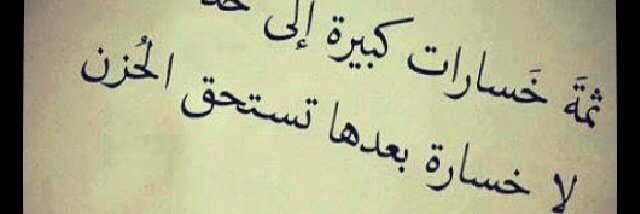 ثمةَ خَسارات كبيرة إلى حد
لا خسارة بعدها تستحق الحُزن